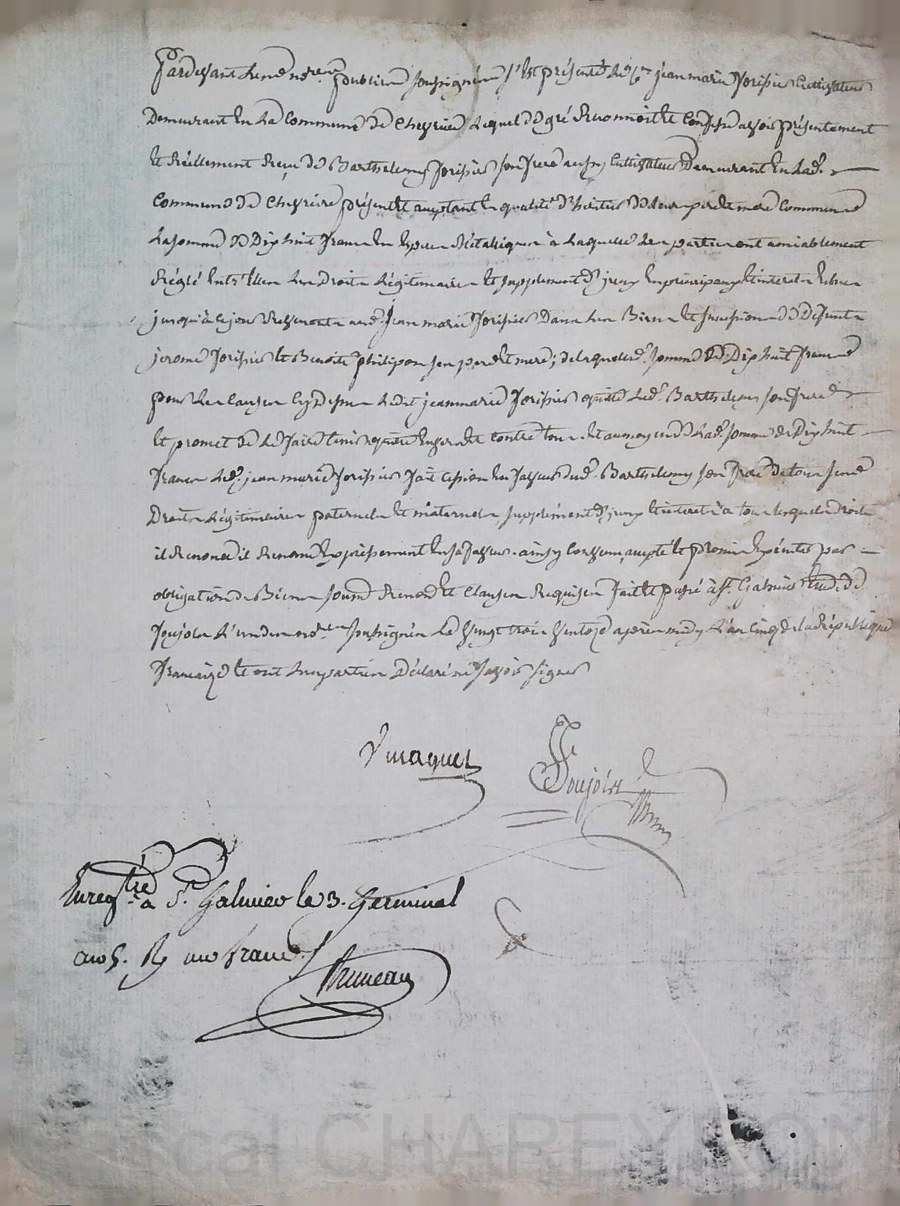 Pardevant les no.res publics soussignés s'est présenté le c.en jean marie forisier Cultivateur
Demeurant en La Commune de Cheyrieu Lequel de gré Reconnoit et Confesse avoir présentement
et Réellement Reçu de Barthelemy forisier son frere aussy Cultivateur Demeurant en Lad.
Commune de Cheyrieu présent et aceptant en qualité d'héritier de leurs pere et mere Communs
La somme de Dix huit francs en espece Métallique à Laquelle les parties ont amiablement
Réglé entr'elles Les Droits Légitimaires et supplement d'yceux en principaux et interets echus
jusqu'à ce jour Revenants aud. Jean marie forisier Dans Les Biens et succession de defunts
jerome forisier et Benoite philipon ses pere et mere; de laquelle somme de Dix huit francs
pour Les Causes cy Dessus Ledit jean marie forisier quitte Led. Barthelemy son frere
et promet de Le faire tenir quitte envers et contre tous et au moyen de Lad. somme de Dix huit
francs Led. jean marie forisier fait cession en faveur dud. Barthelemy son frere de tous ses
Droits Légitimaires paternels et maternels supplement d'yceux et interets à tous lesquels droits
il Renonce Expressement en sa faveur. ainsy Convenu accepté et promis exécuter par
obligation de Biens soumis. Renon. et Clauses Requises fait et passé à S.t Galmier Etude de
Poujols L'un des no.res soussignés Le vingt trois ventose après midy L'an cinq de la République
française et ont Les parties Déclaré ne savoir signer
Ymaquet
Poujols
Enreg.tré à S.t Galmier le 3. Germinal
an 5. R. un franc
Bruneau
Pascal CHAREYRON